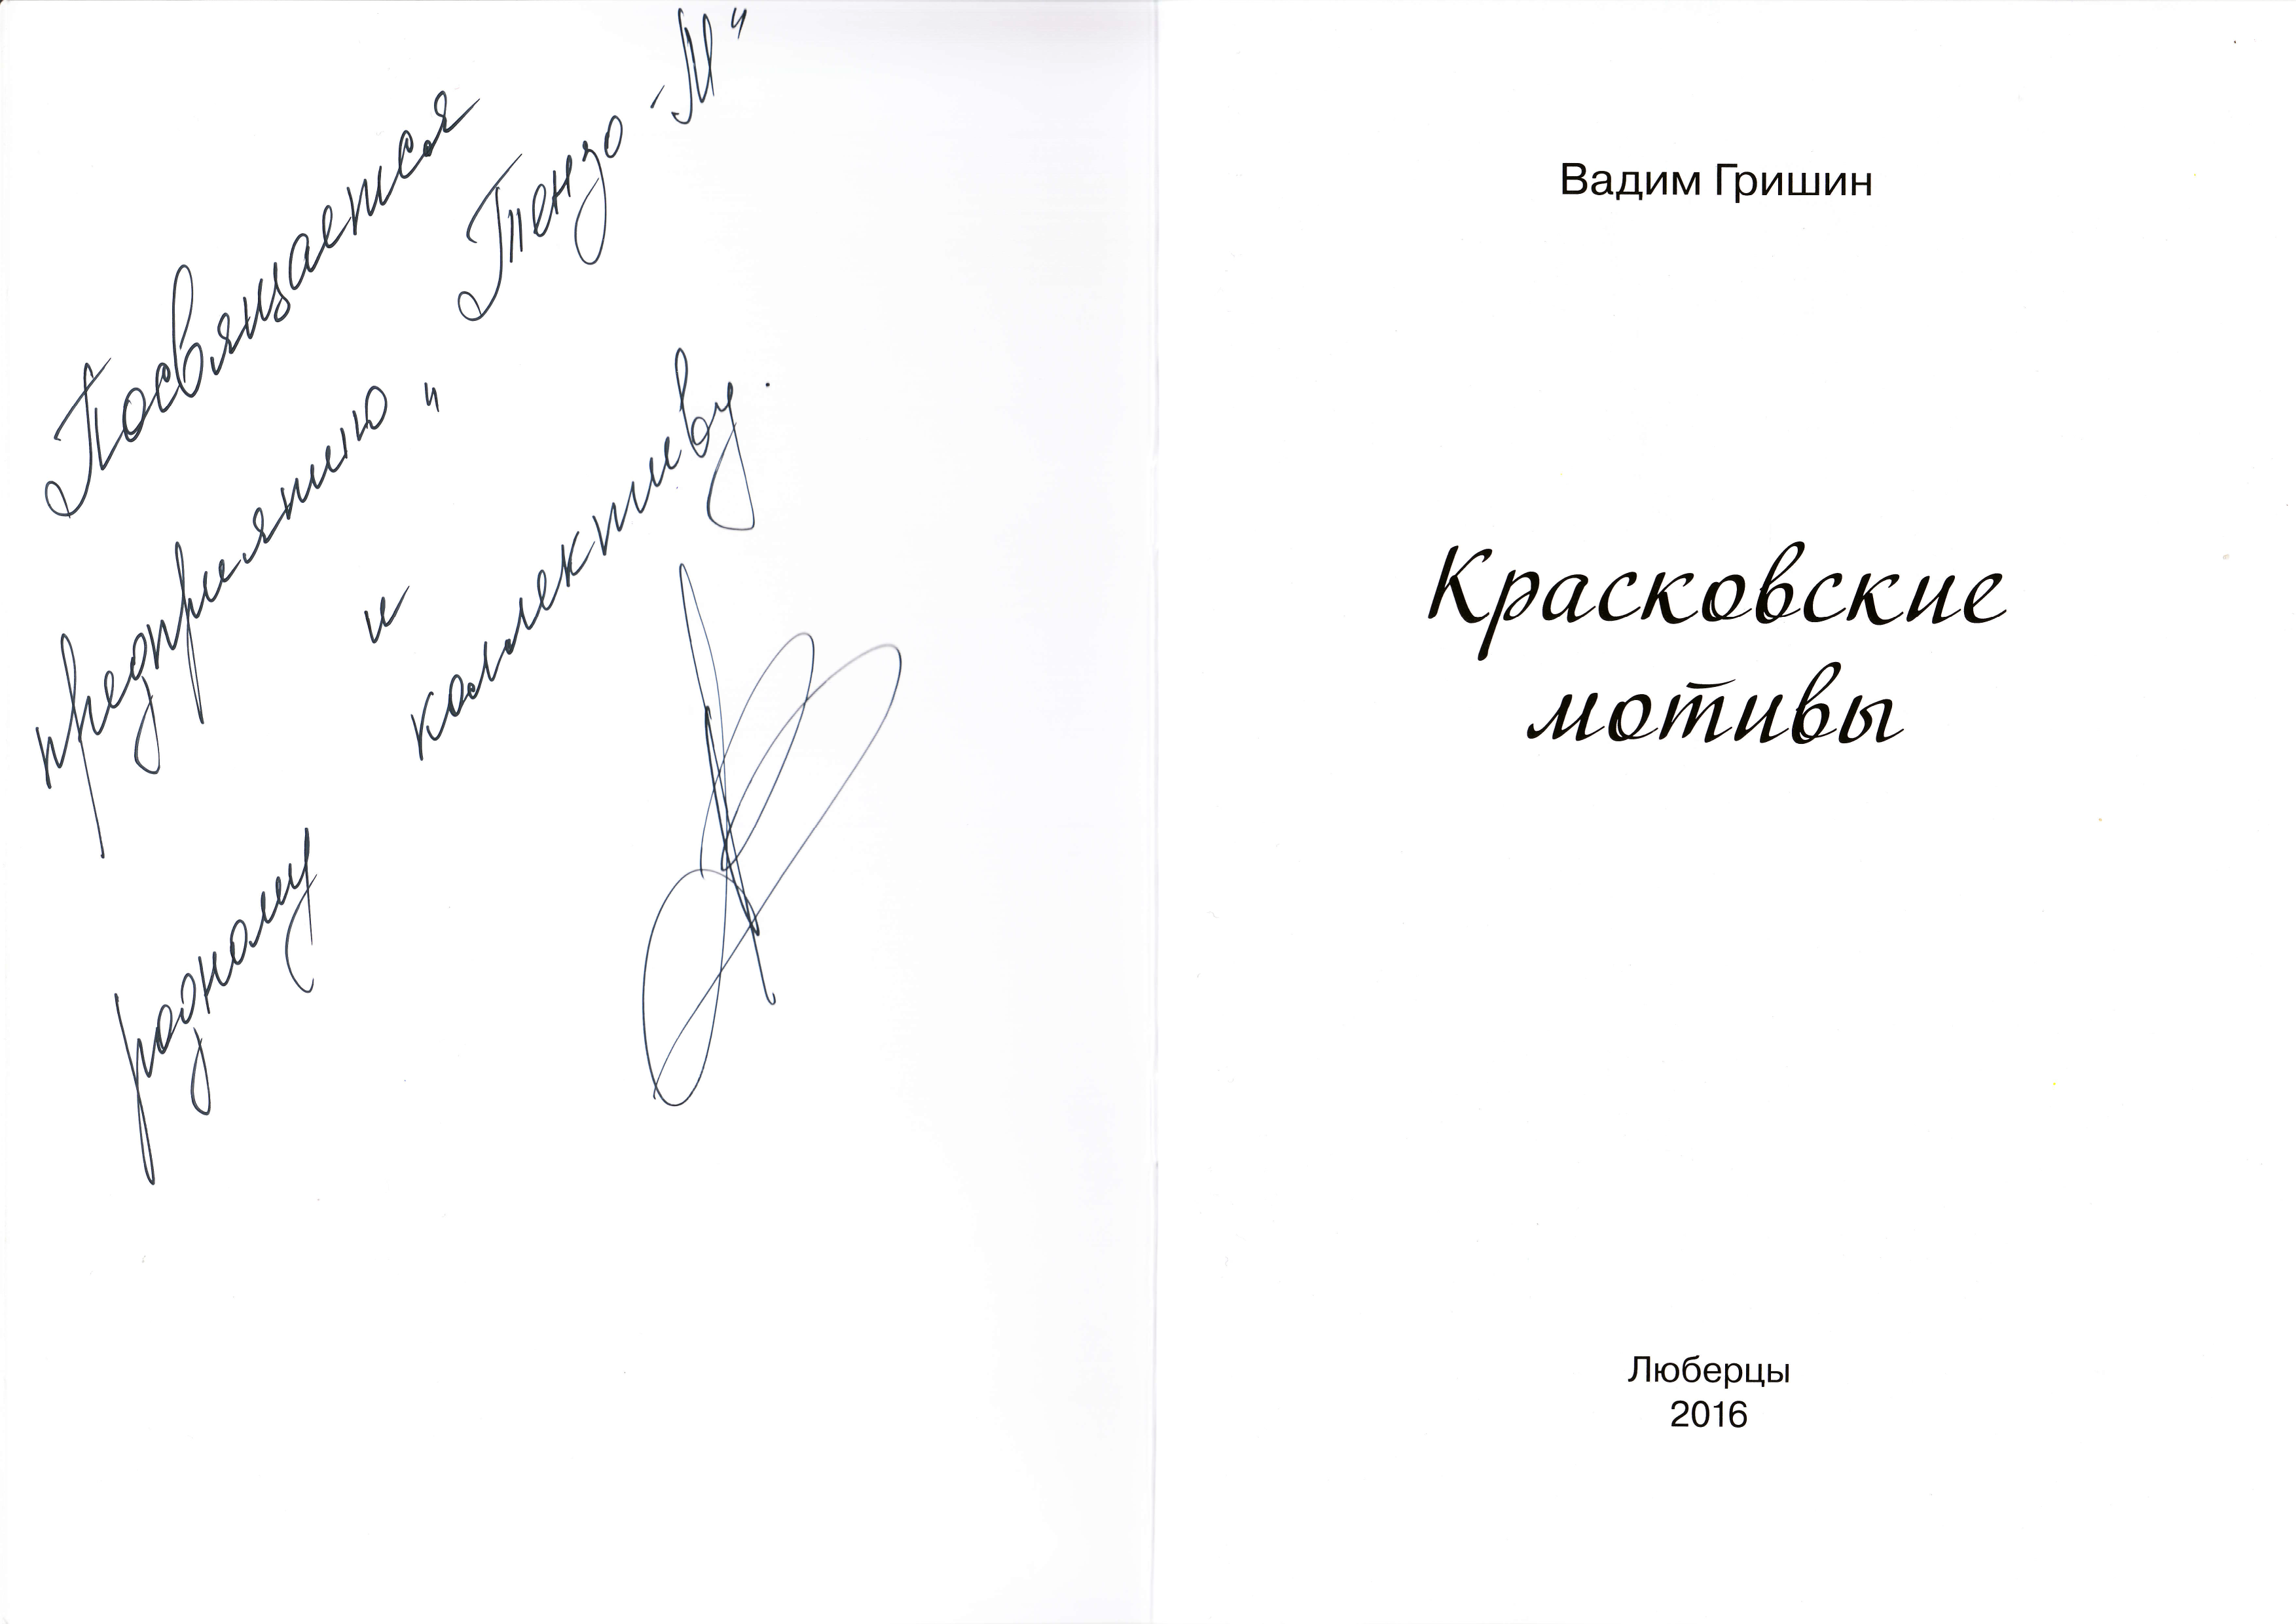 Посвящается
предприятию „Тензо-М"
и
родному коллективу.
Вадим Гришин
Красковские
мотивы
Люберцы
2016